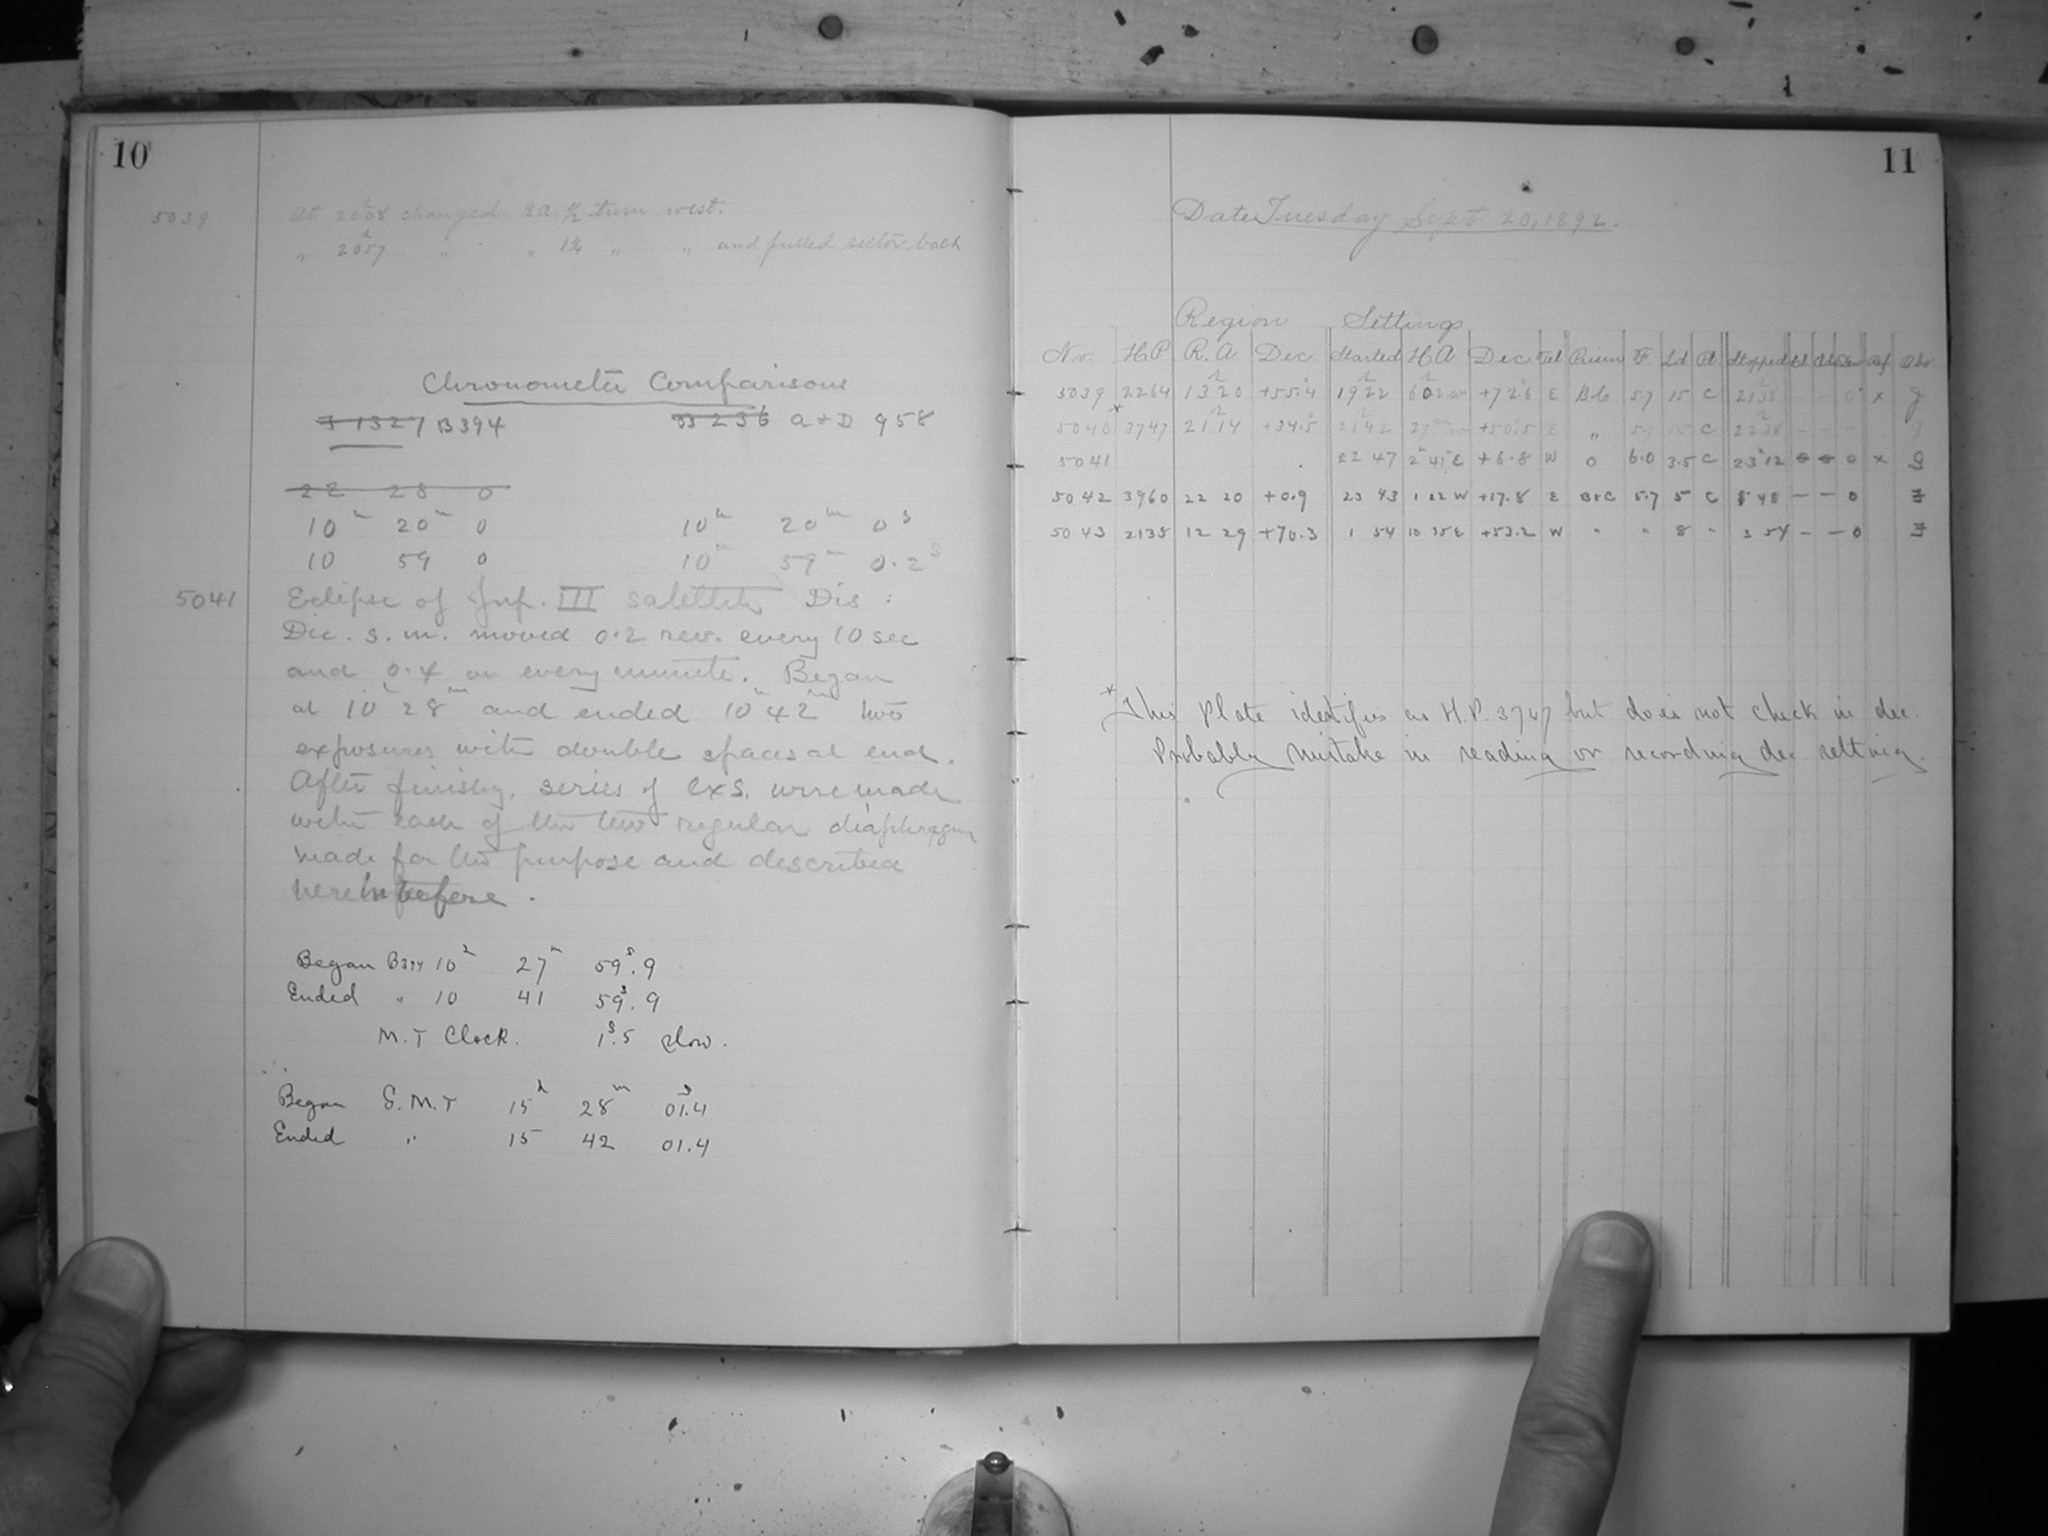 10
5039 At 20h08 changed RA ½ turn west.
" 20h57 " " 1¾ " " and pulled sector back
Chronometer Comparisons
B394 A+D 958
22 28 0
10h 20m 0 10h 20m 0s
10 59 0 10h 59m 0.2s
5041 Eclipse of Jup. III satellite Dis :
Dec. s.m. moved 0.2 rev. every 10 sec
and 0.4 on every minute. Began
at 10h 28m and ended 10h 42m two
exposures with double spaces at end.
After finishg. series of exs. were made
with each of the two regular diaphragms
made for the purpose and described
hereinbefore.
Began B394 10h 27m 59s.9
Ended " 10 41 59s.9
M.T Clock. 1s.5 slow.
Began G.M.T 15h 28m 01s.4
Ended " 15 42 01.4
11
Date Tuesday Sept. 20, 1892.
Region Settings
No. H.P. R.A Dec Started H.A. Dec Tel Prism F Ld Pl Stopped
5039 2264 13h20 +55°.4 19h22 6h02w +72°.6 E 5.7 15 C 21h38 0 x
5040* 3747 21h14 +34°.5 21h42 27m w +50°.5 E " 5.7 C
5041 22 47 2h41m E +6.8 W 0 6.0 3.5 C 23h12 0 x
5042 3960 22 20 +0.9 23 43 1 22 W +17.8 E B+C 5.7 5 C 48 – – 0
5043 2138 12 29 +70.3 1 54 10 35 E +53.2 W " " 8 " 54 – – 0
*This plate identifies as H.P. 3747 but does not check in dec.
Probably mistake in reading or recording dec. setting.